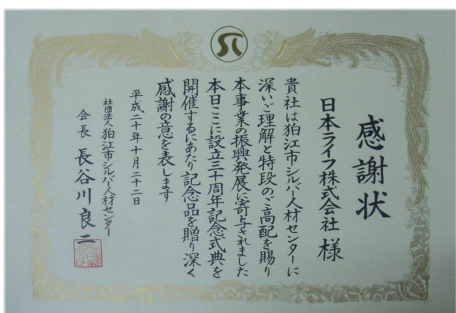 感謝状
日本ライフ株式会社 様
貴社は狛江市シルバー人材センターに
深いご理解と特段のご高配を賜り
本事業の振興発展に寄与されました
本日ここに設立三十周年記念式典を
開催するにあたり記念品を贈り深く
感謝の意を表します
平成二十年十月二十二日
社団法人 狛江市シルバー人材センター
会長 長谷川良二